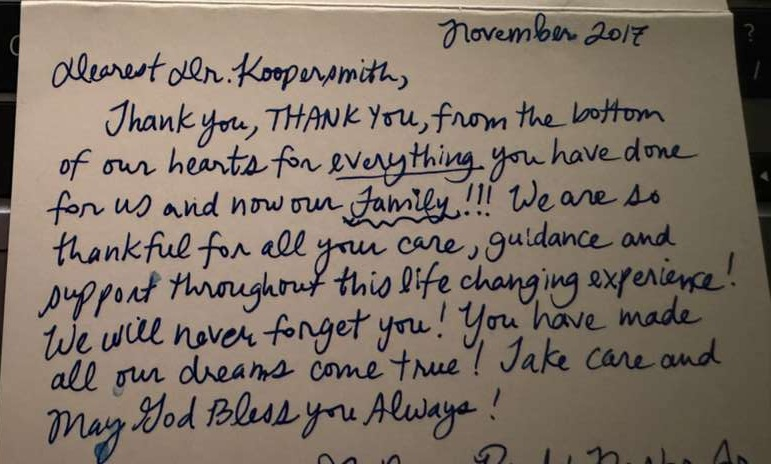 November 2017
Dearest Dr. Koopersmith,
Thank you, THANK YOU, from the bottom
of our hearts for everything you have done
for us and now our Family!!! We are so
thankful for all your care, guidance and
support throughout this life changing experience!
We will never forget you! You have made
all our dreams come true! Take care and
May God Bless you Always!